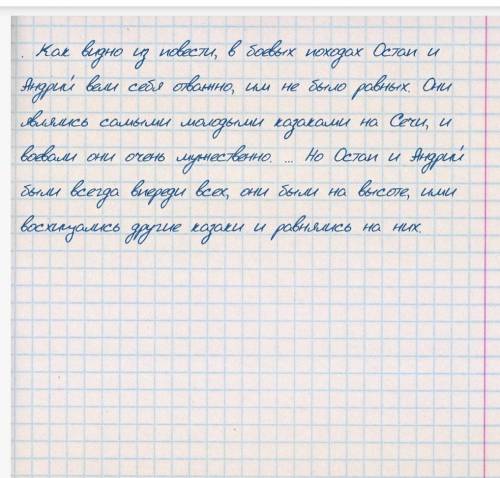 . Как видно из повести, в боевых походах Остап и
Андрий вели себя отважно, им не было равных. Они
являлись самыми молодыми казаками на Сечи, и
воевали они очень мужественно. ... Но Остап и Андрий
были всегда впереди всех, они были на высоте, ими
восхищались другие казаки и равнялись на них.